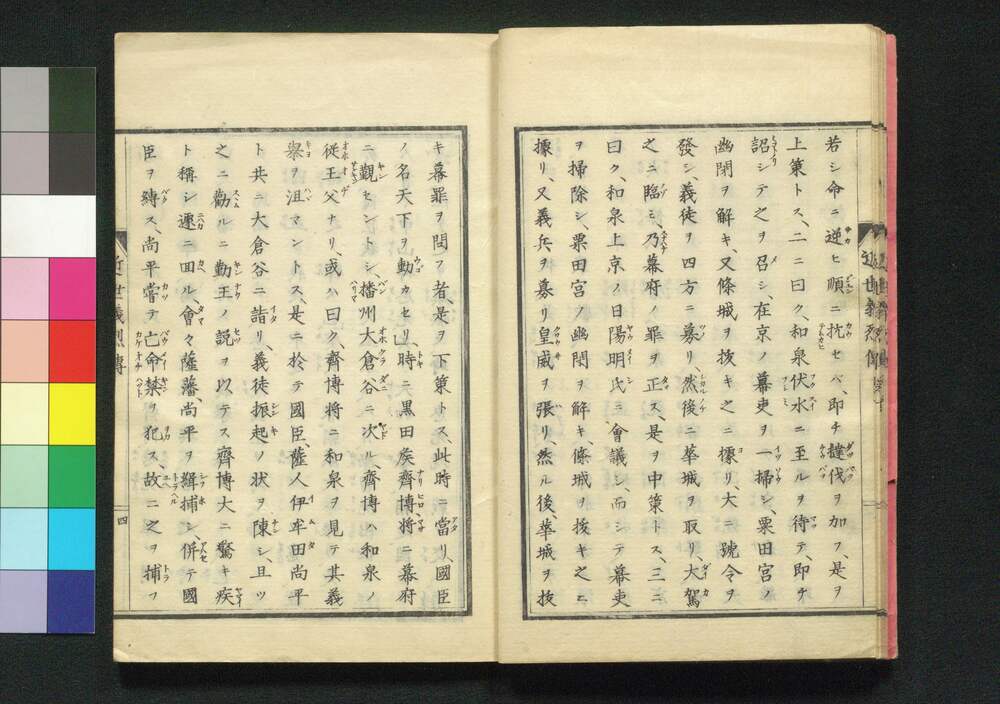 若シ命ニ逆ヒ順ニ抗セバ、即チ撻伐ヲ加フ、是ヲ
上策トス、二ニ曰ク、和泉伏水ニ至ルヲ待テ、即チ
詔シテ之ヲ召シ、在京ノ幕吏ヲ一掃シ、粟田宮ノ
幽閉ヲ解キ、又條城ヲ抜キ之ニ據リ、大ニ號令ヲ
發シ、義徒ヲ四方ニ募リ、然後ニ華城ヲ取リ、大駕
之ニ臨ミ、乃幕府ノ罪ヲ正ス、是ヲ中策トス、三ニ
曰ク、和泉上京ノ日陽明氏ニ會議シ、而シテ幕吏
ヲ掃除シ、粟田宮ノ幽閉ヲ解キ、條城ヲ抜キ之ニ
據リ又義兵ヲ募リ皇威ヲ張リ、然ル後、華城ヲ抜
キ幕罪ヲ問フ者、是ヲ下策トス、此時ニ當リ、國臣
ノ名天下ヲ動カセリ、時ニ黒田矦齊博將ニ幕府
ニ觀セントシ、播州大倉谷ニ次ル、齊博ハ和泉ノ
從王父ナリ、或ハ曰ク、齊博將ニ和泉ヲ見テ其義
舉ヲ沮マントス、是ニ於テ國臣、薩人伊牟田尚平
ト共ニ大倉谷ニ詣リ、義徒振起ノ状ヲ陳シ、且ツ
之ニ勸ルニ勤王ノ説ヲ以テス齊博大ニ驚キ疾
ト稱シ遽ニ回ル、會々薩藩、尚平ヲ緝捕シ、併テ國
臣ヲ縛ス、尚平嘗テ亡命禁ヲ犯ス、故ニ之ヲ捕フ
近世義烈傳
四